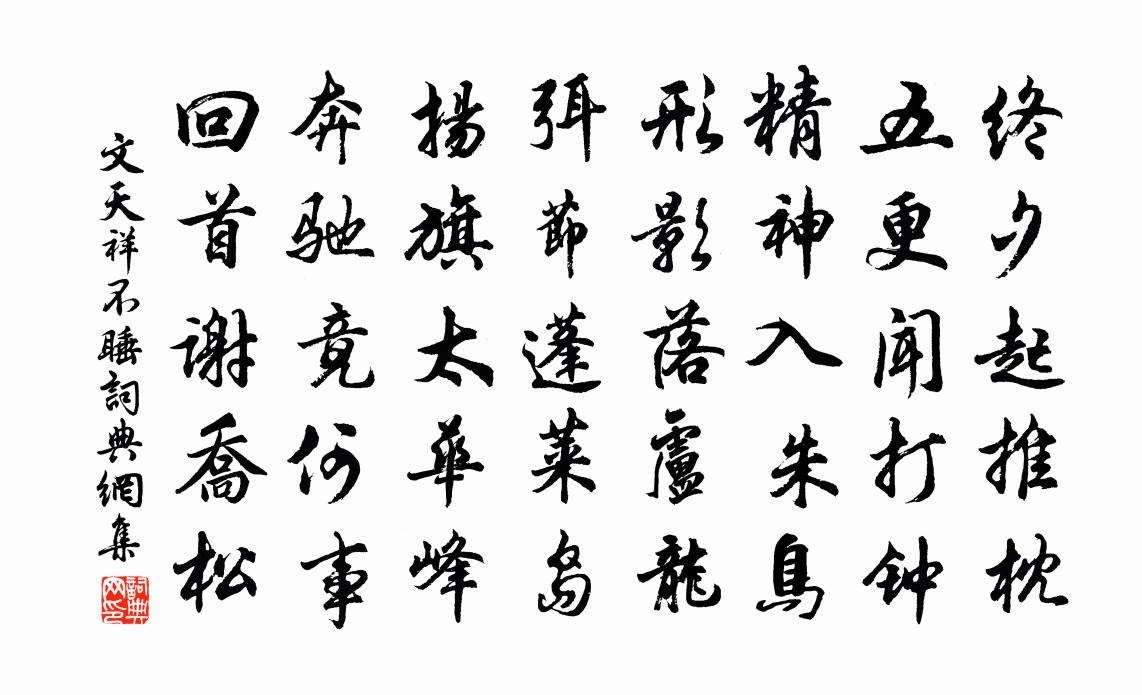 终夕起推枕
五更闻打钟
精神入朱鳥
形影落盧龍
弭節蓬莱島
揚旗太華峰
奔馳竟何事
回首謝喬松
文天祥不睡詞典網集
詞典
网印